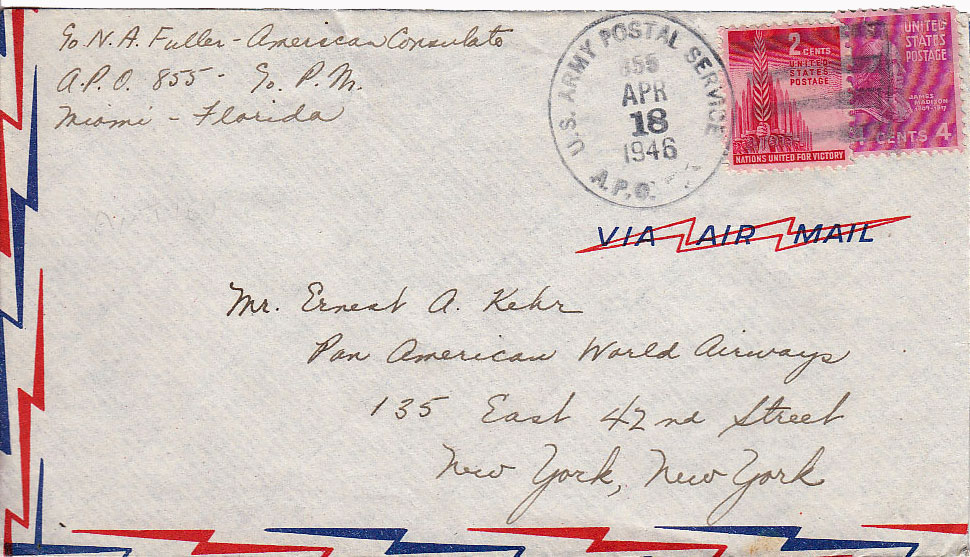 ℅ N. A. Fuller - American Consulate
A.P.O. 855 - ℅ P.M.
Miami - Florida
U.S. ARMY POSTAL SERVICE
855
APR
18
1946
A.P.O.
2 CENTS
UNITED
STATES
POSTAGE
NATIONS UNITED FOR VICTORY
UNITED
STATES
POSTAGE
JAMES
MADISON
1809-1817
CENTS 4
VIA AIR MAIL
Mr. Ernest A. Kehr
Pan American World Airways
135 East 42nd Street
New York, New York